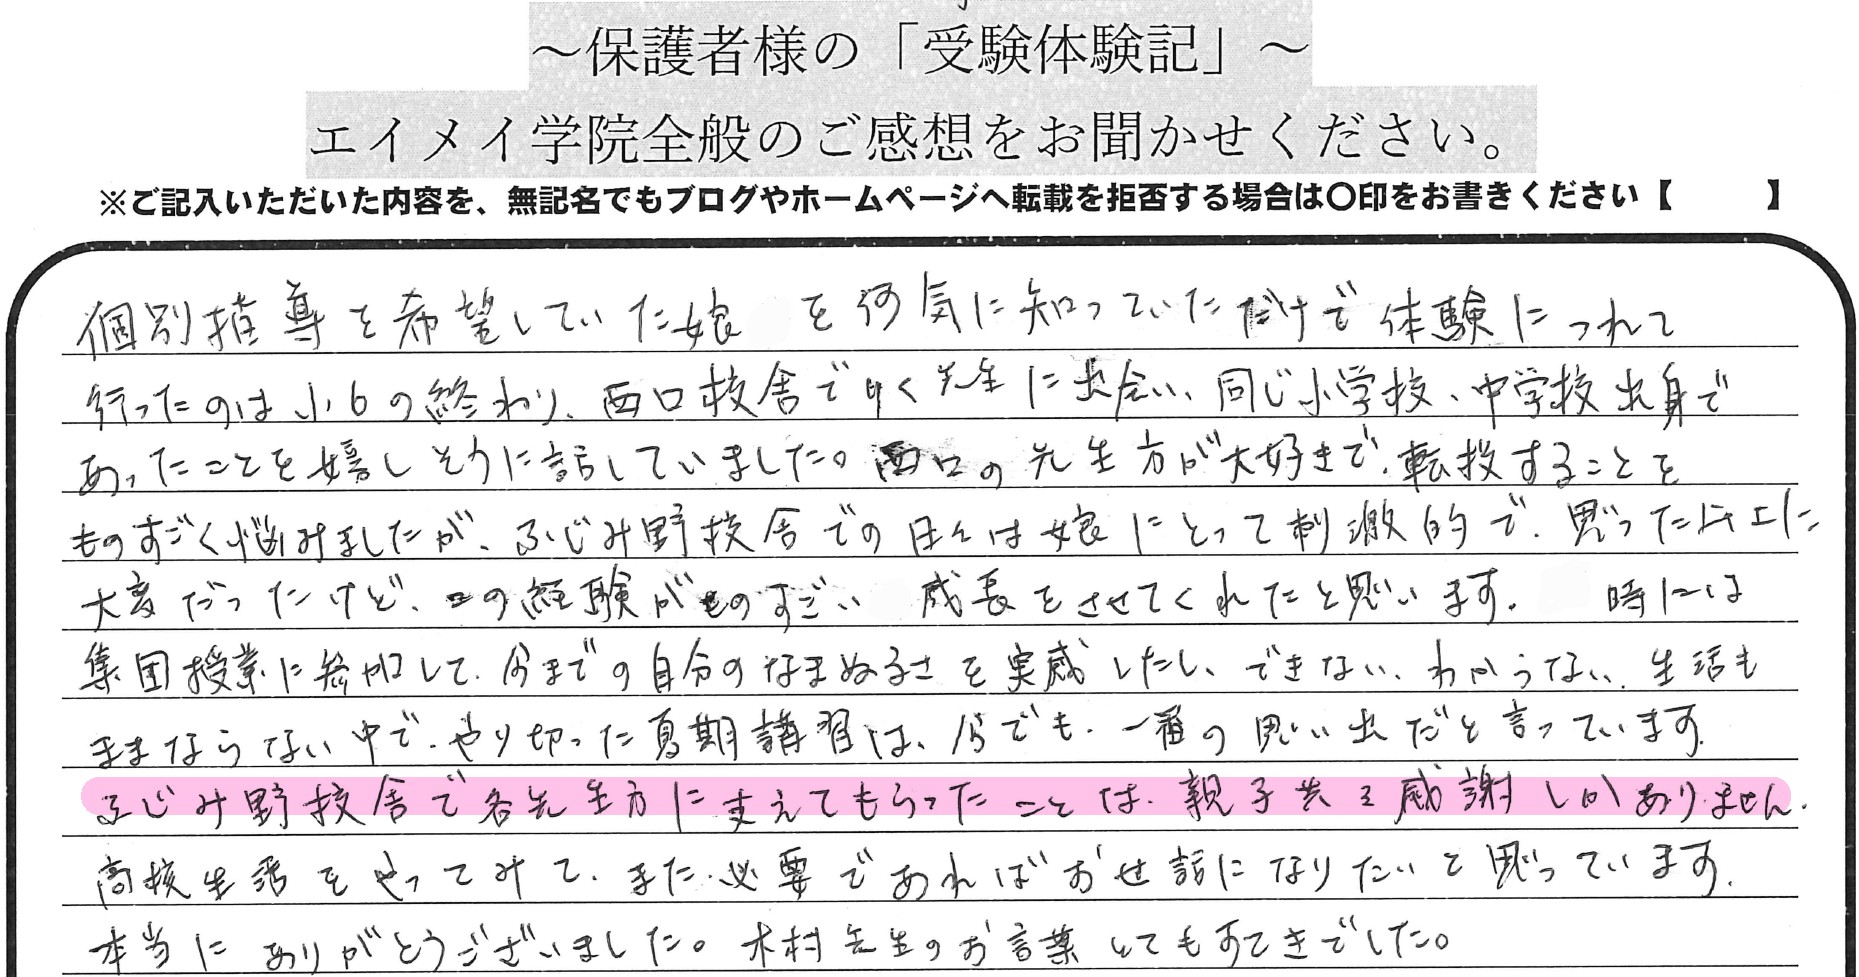 ～保護者様の「受験体験記」～
エイメイ学院全般のご感想をお聞かせください。
※ご記入いただいた内容を、無記名でもブログやホームページへ転載を拒否する場合は〇印をお書きください【　　　】
個別指導を希望していた娘　を何気に知っていただけで体験につれて
行ったのは小6の終わり、西口校舎で 先生に出会い、同じ小学校、中学校出身で
あったことを嬉しそうに話していました。西口の先生方が大好きで、転校することを
ものすごく悩みましたが、ふじみ野校舎での日々は娘にとって刺激的で、思った以上に、
大変だったけど、この経験がものすごい　成長をさせてくれたと思います。　時には
集団授業に参加して、今までの自分のなまぬるさを実感したし、できない、わからない、生活も
ままならない中で、やり切った夏期講習は、今でも、一番の思い出だと言っています。
ふじみ野校舎で各先生方に支えてもらったことは、親子共々感謝しかありません。
高校生活をやってみて、また、必要であればお世話になりたいと思っています。
本当にありがとうございました。木村先生のお言葉とてもすてきでした。